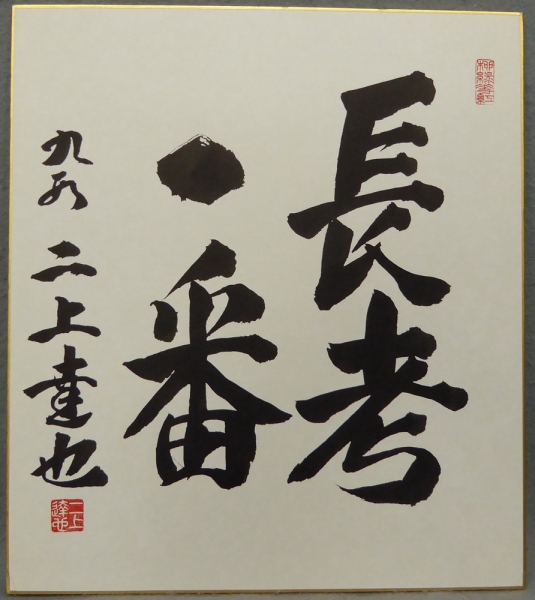 長考
一番
九段 二上達也
二上
達也